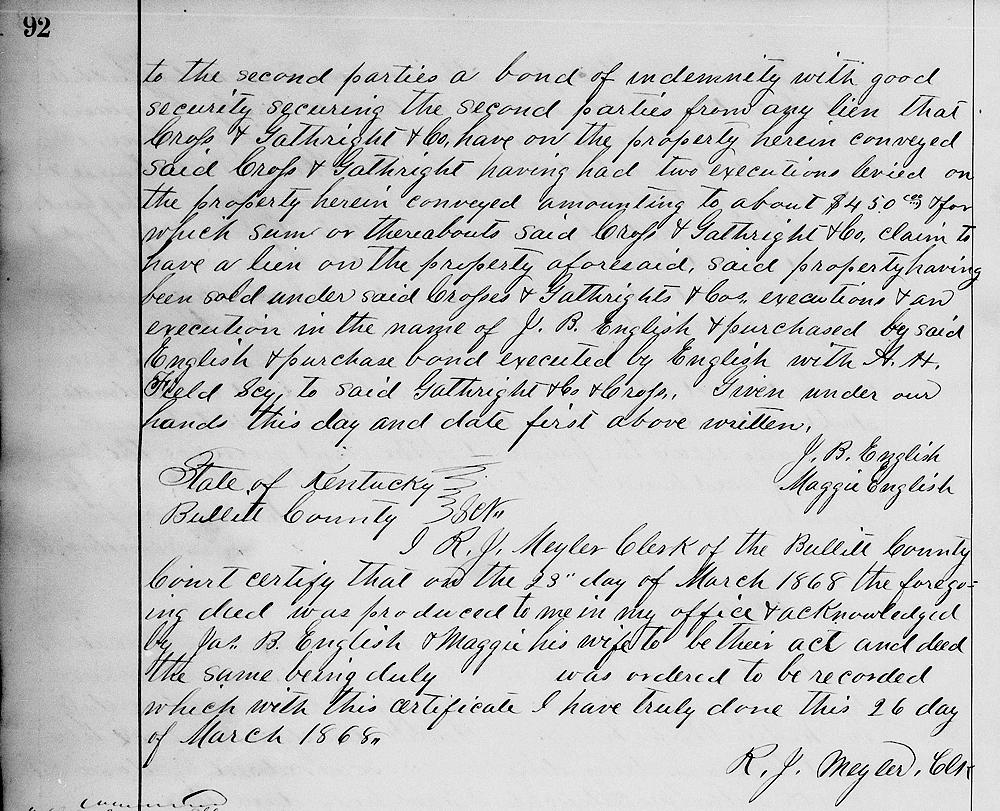 92
to the second parties a bond of indemnity with good
security securing the second parties from any lien that
Cross & Gathright & Co, have on the property herein conveyed
said Cross & Gathright having had two executions levied on
the property herein conveyed amounting to about $450 00 & for
which sum or thereabouts said Cross & Gathright & Co, claim to
have a lien on the property aforesaid, said property having
been sold under said Crosses & Gathrights & Cos, executions & an
execution in the name of J. B. English & purchased by said
English & purchase bond executed by English with H. H.
Field Scy, to said Gathright & Co & Cross,. Given under our
hands this day and date first above written,
J. B. English
Maggie English
State of Kentucky
Bullitt County Sct"
I R. J. Meyler Clerk of the Bullitt County
Court certify that on the 23" day of March 1868 the forego=
ing deed was produced to me in my office & acknowledged
by Jas" B. English & Maggie his wife to be their act and deed
the same being duly was ordered to be recorded
which with this certificate I have truly done this 26 day
of March 1868"
R. J. Meyler, Clk